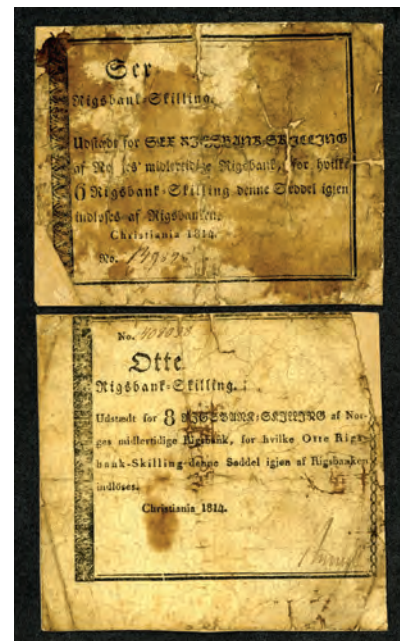 Sex
Rigsbank-Skilling.
Udstædt for SEX RIGSBANK-SKILLING
af midlertidige Rigsbank, for hvilke
6 Rigsbank-Skilling denne Seddel igien
indløses af Rigsbanken.
Christiania 1814.
No.
No.
Otte
Rigsbank-Skilling.
Udstædt for 8 RIGSBANK-SKILLING af Nor-
ges midlertidige Rigsbank, for hvilke Otte Rigs-
bank-Skilling denne Seddel igien af Rigsbanken
indlöses.
Christiania 1814.